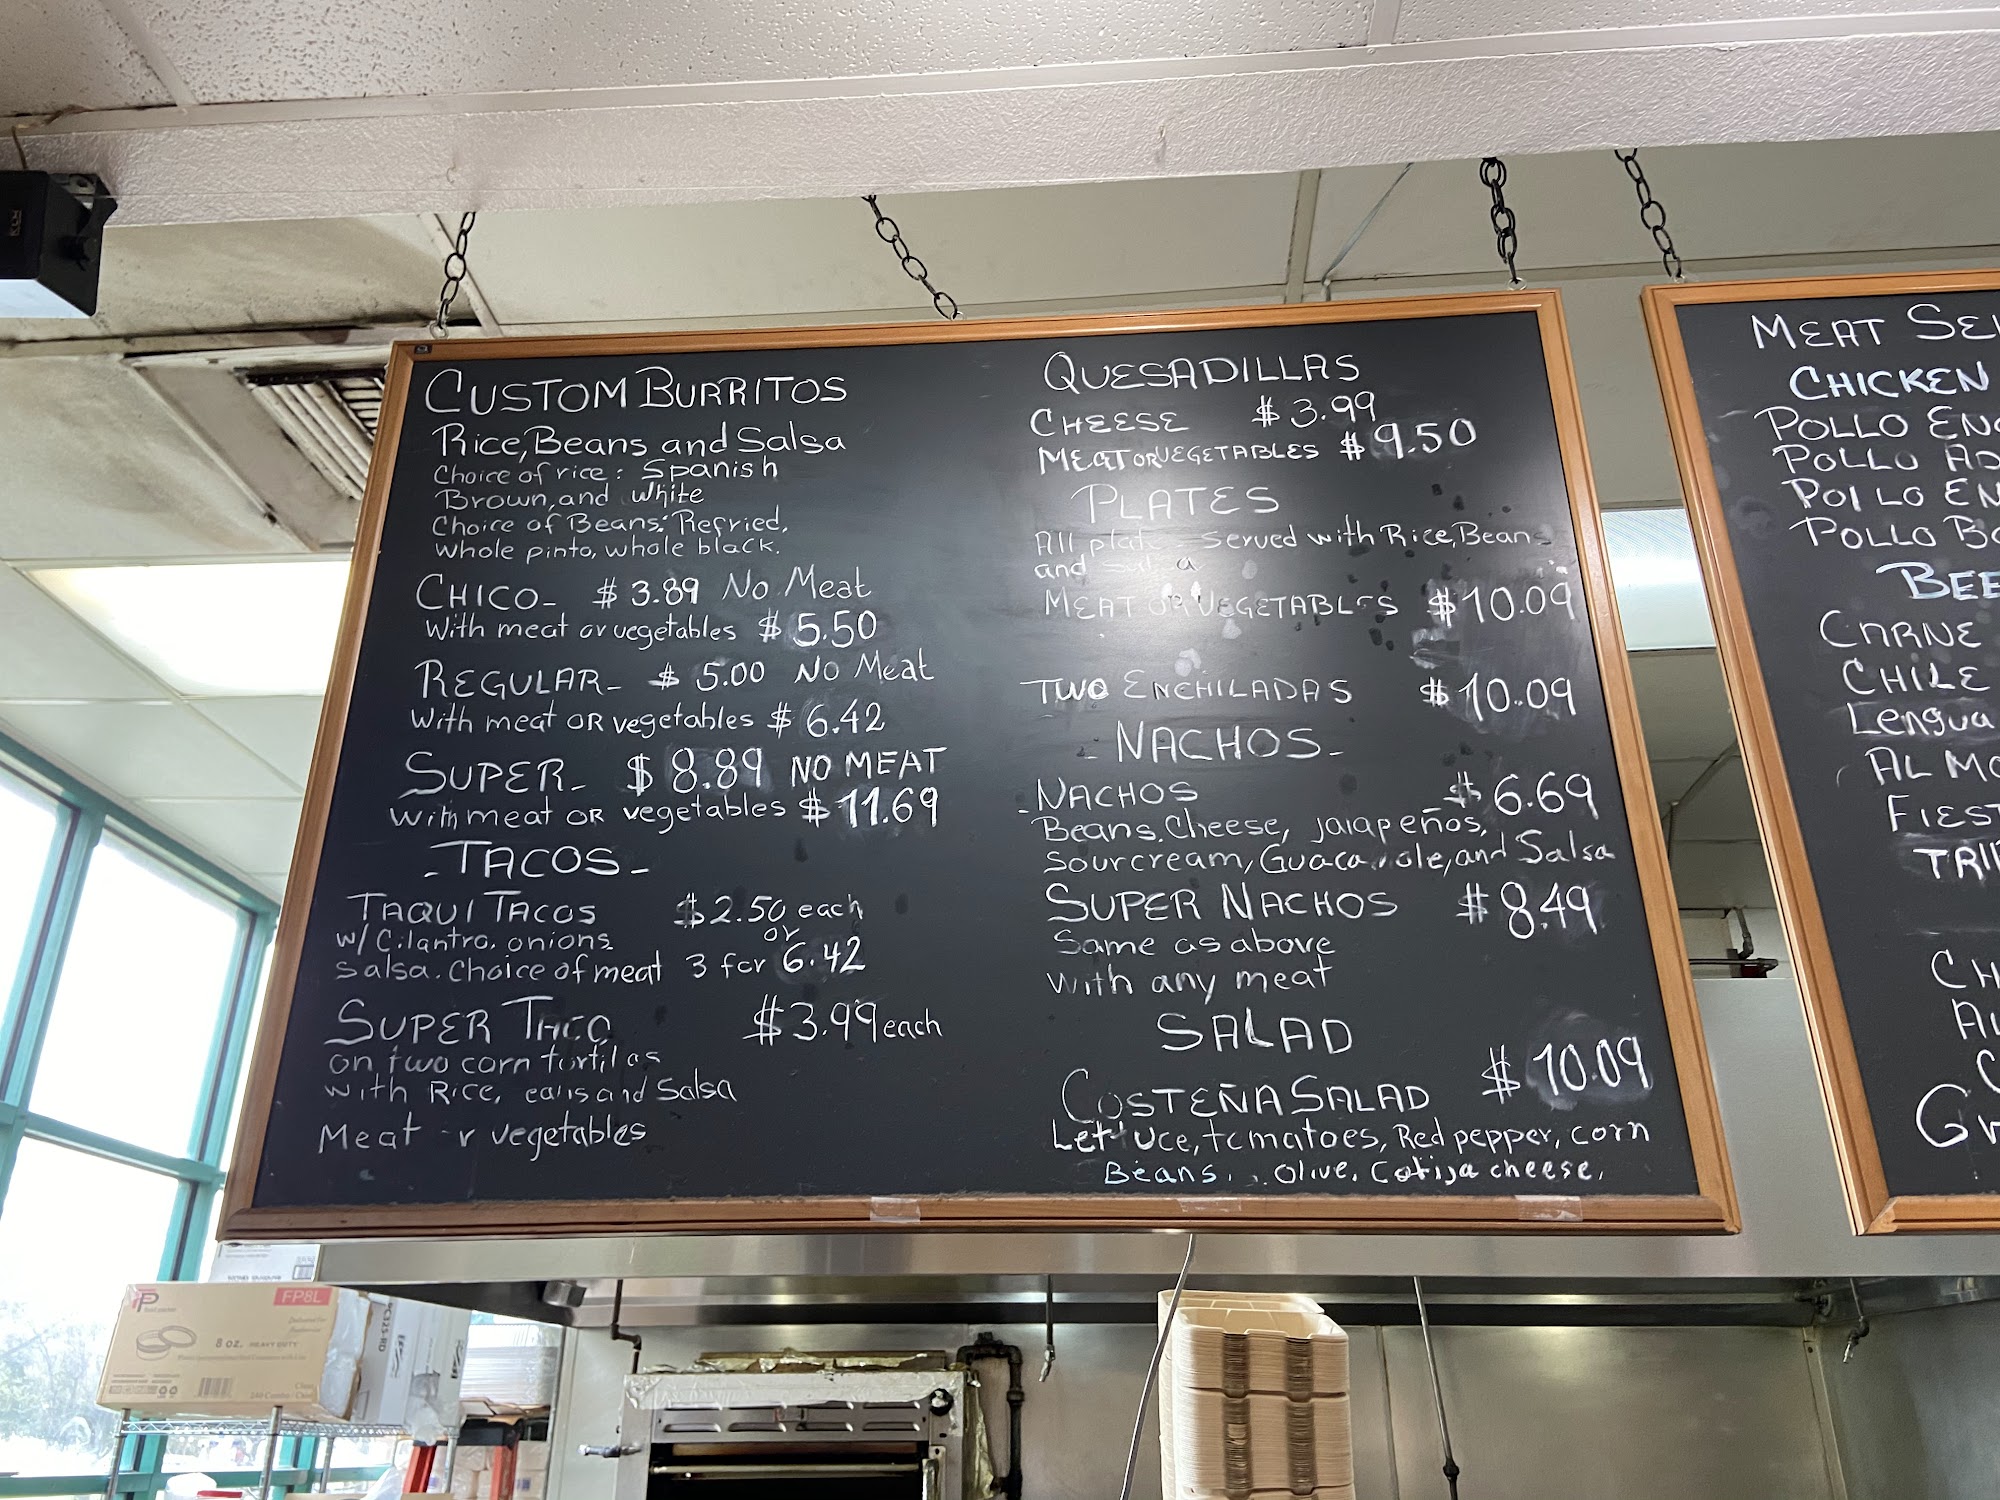 CUSTOM BURRITOS
Rice, Beans and Salsa
Choice of rice: Spanish
Brown, and White
Choice of Beans: Refried,
whole pinto, whole black.
CHICO - $3.89 No Meat
With meat or vegetables $5.50
REGULAR - $5.00 No Meat
With meat OR vegetables $6.42
SUPER - $8.89 NO MEAT
With meat OR vegetables $11.69
- TACOS -
TAQUI TACOS $2.50 each
or
w/ Cilantro, onions
salsa. Choice of meat 3 for 6.42
SUPER TACO $3.99 each
on two corn tortil as
with Rice, eans and Salsa
Meat r vegetables
QUESADILLAS
CHEESE $3.99
MEAT OR VEGETABLES $9.50
PLATES
All plat served with Rice, Beans
and a
MEAT OR VEGETABLES $10.09
TWO ENCHILADAS $10.09
- NACHOS -
- NACHOS - $6.69
Beans, Cheese, jalapeños,
Sourcream, Guaca ole, and Salsa
SUPER NACHOS $8.49
Same as above
with any meat
SALAD
COSTEÑA SALAD $10.09
Lettuce, tomatoes, Red pepper, corn
Beans, Olive, Cotija cheese,
MEAT SE
CHICKEN
POLLO EN
POLLO AD
POLLO EN
POLLO BO
BEE
CARNE
CHILE
Lengua
AL MO
FIEST
TRI
CH
A
C
G
FP8L
TP
8 OZ. HEAVY DUTY